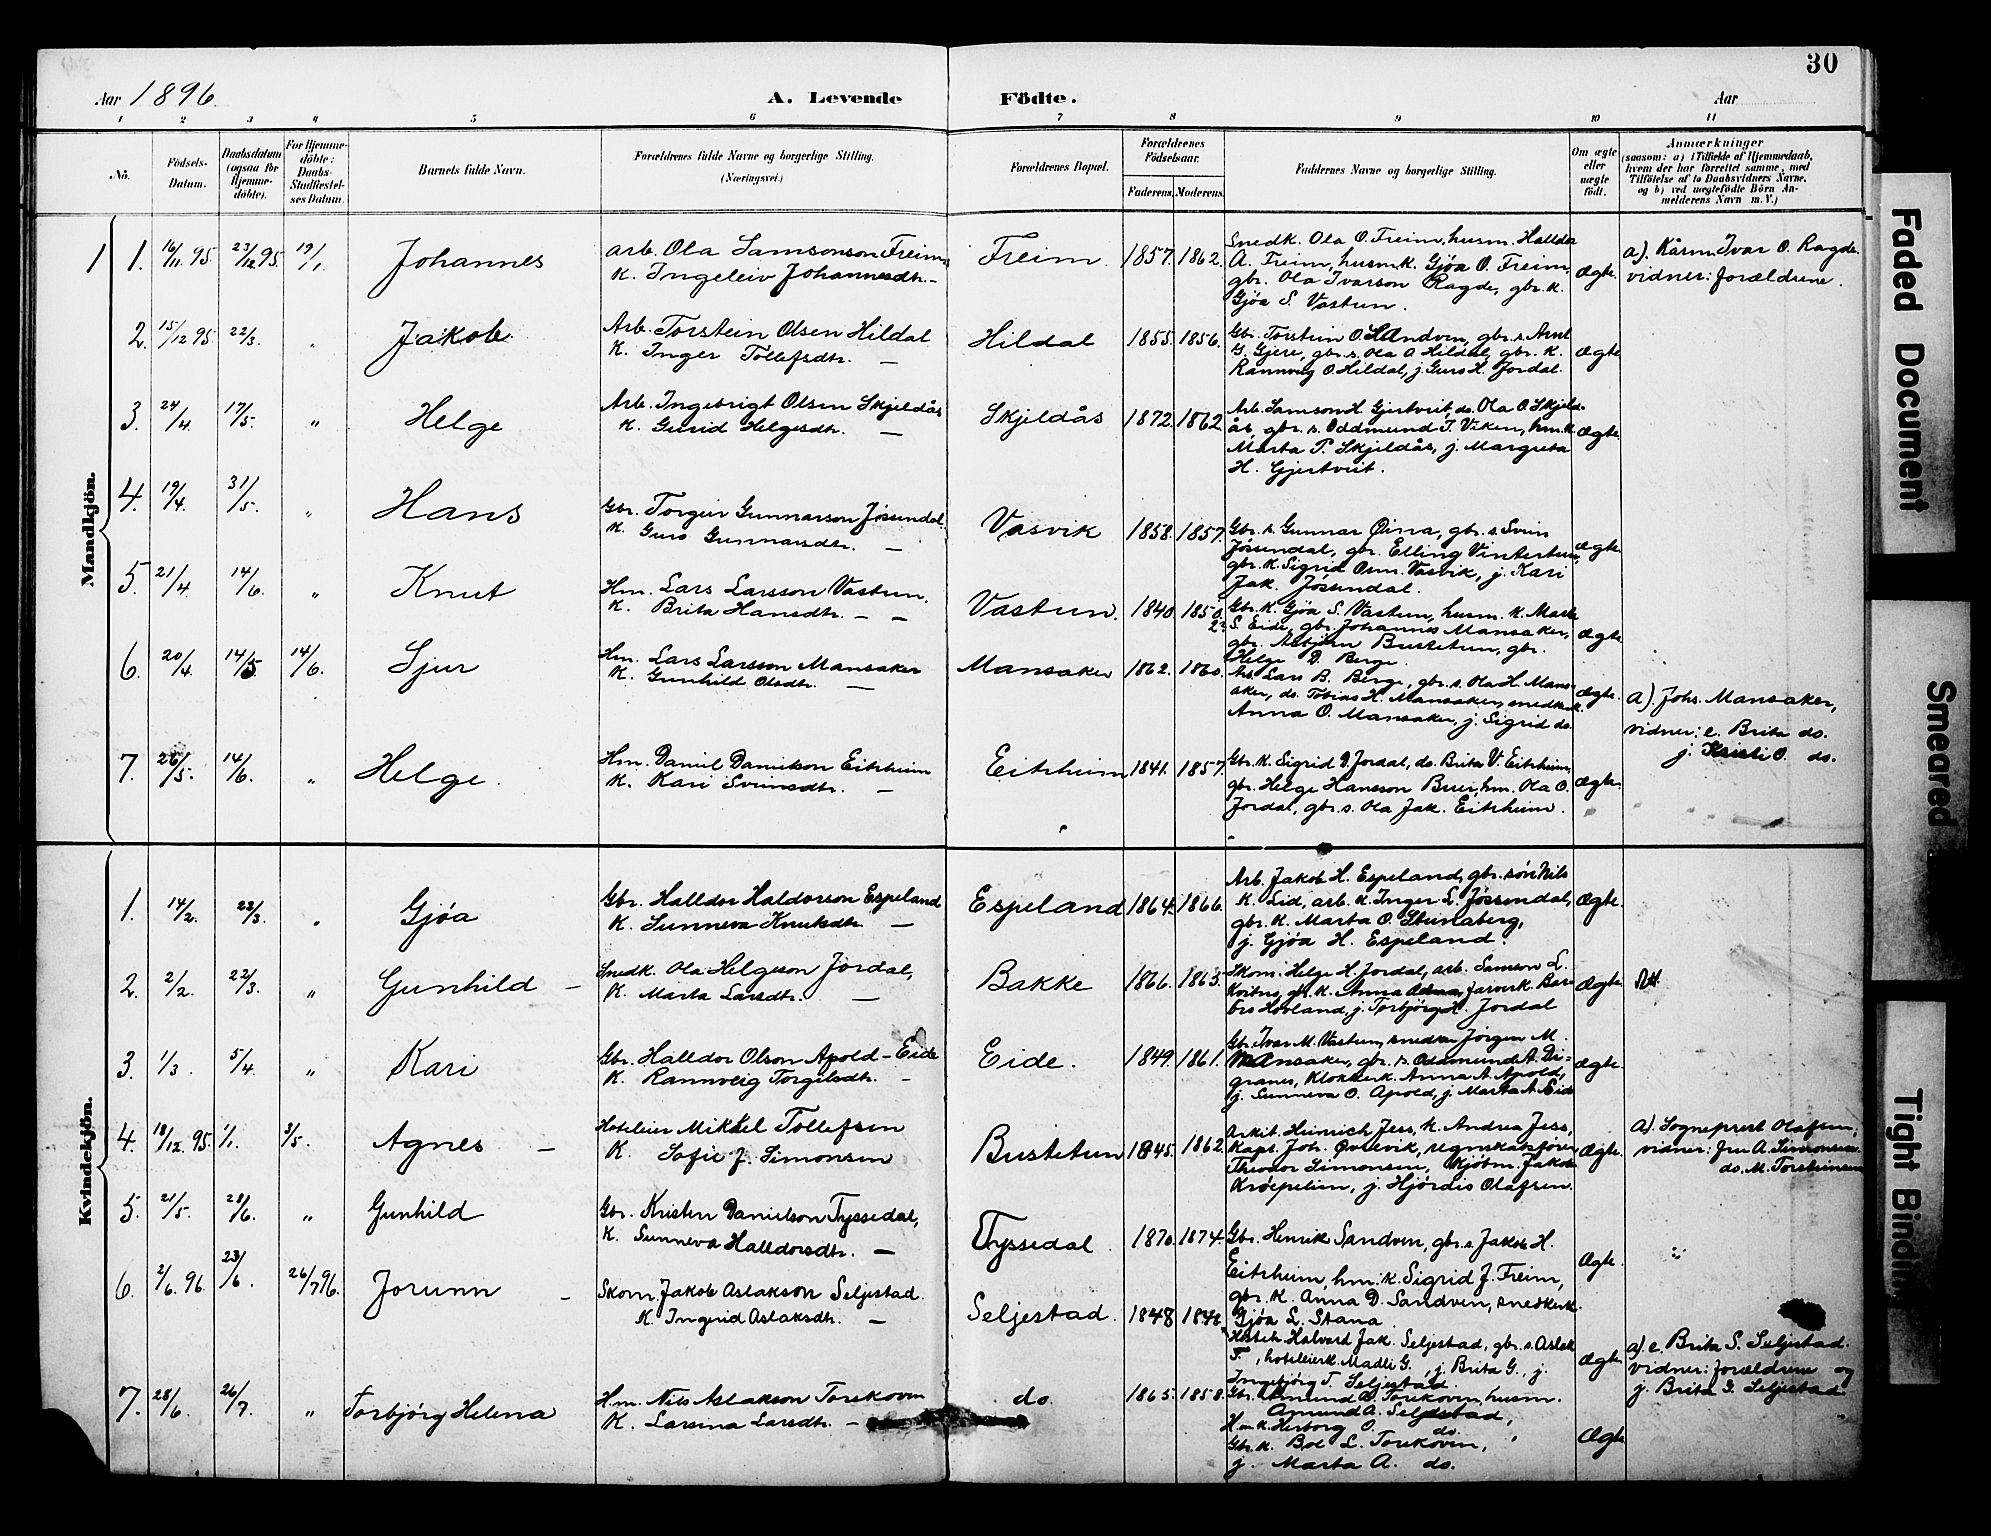 30
Aar 1896.
A. Levende Födte.
Aar
1 2 3 4 5 6 7 8 9 10 11
No. Födsels-Datum. Daabsdatum (ogsaa for Hjemmedöbte). For Hjemmedöbte: Daabs-Stadfæstelses Datum. Barnets fulde Navn. Forældrenes fulde Navne og borgerlige Stilling. (Næringsvei.) Forældrenes Bopæl. Forældrenes Födselsaar. Faderens. Moderens. Faddernes Navne og borgerlige Stilling. Om ægte eller uægte födt. Anmærkninger (saasom: a) i Tilfælde af Hjemmedaab, hvem der har forrettet samme, med Tilföielse af to Daabsvidners Navne, og b) ved uægtefödte Börn Anmelderens Navn m. V.)
Mandkjön.
1 1. 16/11 95. 23/12 95. 19/1. Johannes
Arb. Ola Samsonson Freim,
K. Ingeleiv Johannesdtr. —
Freim 1857. 1862.
Snedk. Ola O. Freim, husm. Halldor
A. Freim, husm.k. Gjøa O. Freim,
gbr. Ola Ivarson Ragde, gbr. k.
Gjøa S. Vastun.
Ægte.
a). Kårm. Ivar O. Ragde.
vidner: forældrene.
2. 15/12 95. 22/3. " Jakob
Arb. Torstein Olsen Hildal
K. Inger Tollefsdtr. —
Hildal 1855. 1856.
Gbr. Torstein O. Sandven, gbr. s. Arne
G. Gjere, gbr. s. Ola O. Hildal, gbr. k.
Rannveig O. Hildal, j. Guro H. Jordal.
Ægte
3. 24/4. 17/5. " Helge
Arb. Ingebrigt Olsen Skjeldås
K. Gurid Helgesdtr. —
Skjeldås 1872. 1862.
Arb. Samson H. Gjertveit, do. Ola O. Skjeld-
ås, gbr. s. Oddmund T. Viken, hm.k.
Marta P. Skjeldås, j. Margreta
H. Gjertveit.
Ægte.
4. 19/4. 31/5. " Hans
Gbr. Torgeir Gunnarson Jøsendal,
K. Guro Gunnarsdtr. —
Vasvik 1858. 1857.
Gbr. s. Gunnar Qina, gbr. s. Svein
Jøsendal, gbr. Elling Vintertun,
gbr. k. Sigrid Osm. Vasvik, j. Kari
Jak. Jøsendal.
Ægte
5. 21/4. 14/6. " Knut
Hm. Lars Larsson Vastun,
K. Brita Hansdtr. — —
Vastun. 1840. 1850.
Gbr. K. Gjøa S. Vastun, husm. k. Marta
S. Eide, gbr. Johannes Mansaker,
gbr. Asbjørn Bustetun, gbr.
Helge D. Berge.
Ægte
6. 20/4. 14/5 14/6. Sjur
Hm. Lars Larsson Mansaker
K. Gunhild Olsdtr. —
Mansaker 1862. 1860.
Lars B. Berge, gbr. s. Ola H. Mans-
aker, do. Tobias H. Mansaker, snedker k.
Anna O. Mansaker, j. Sigrid do.
Ægte.
a). Johs. Mansaker,
vidner: e. Brita do.
j. Kristi O. do.
7. 26/5. 14/6. " Helge.
Hm. Daniel Danielson Eitrheim
K. Kari Sveinsdtr. —
Eitrheim 1841. 1857.
Gbr. K. Sigrid D. Jordal, do. Brita V. Eitrheim,
gbr. Helge Hansson Buer, hm. Ola O.
Jordal, gbr. s. Ola Jak. Eitrheim.
Ægte.
Kvindekjön.
1. 14/2. 22/3. " Gjøa
Gbr. Halldor Haldorson Espeland
K. Sunneva Knutsdtr. —
Espeland 1864. 1866.
Arb. Jakob H. Espeland, gbr. søn Nils
K. Lid, arb. k. Inger L. Jøssendal,
gbr. K. Marta O. Steinaberg,
j. Gjøa H. Espeland.
Ægte.
2. 2/2. 22/3. " Gunhild —
Snedk. Ola Helgeson Jordal,
K. Marta Larsdtr. —
Bakke 1866. 1863.
Skom. Helge H. Jordal, arb. Samson L.
Hovland, j. Torbjørg H. Jordal
Ægte.
3. 1/3. 5/4. " Kari
Gbr. Halldor Olson Apold-Eide
K. Rannveig Torgilsdtr. —
Eide. 1849. 1861.
Gbr. Ivar M. Vastun, snedker Jørgen M.
Mansaker, gbr. s. Oddmund A. Di-
granes, Klokkerk. Anna A. Apold,
j. Sunneva O. Apold, j. Marta A. Eide
Ægte.
4. 18/12. 95. 1/1. 3/5. Agnes —
Hoteleier Mikkel Tollefsen
K. Sofie J. Simonsen
Bustetun 1845. 1862.
Arkit. Heinrich Jess, k. Andrea Jess,
Kapt. Joh. Qvalvik, regnskabsfører
Theodor Simonsen, kjøbm. Jakob
Krøepelien, j. Hjørdis Olafsen.
Ægte.
a). Sogneprest Olafsen,
vidner: fru A. Simonsen
do. M. Torsteinsen
5. 21/5. 28/6. " Gunhild
Gbr. Kristen Danielson Tyssedal,
K. Sunneva Halldorsdtr. —
Tyssedal. 1870. 1874.
Gbr. Henrik Sandven, gbr. s. Jakob H.
Eitrheim, hm. k. Sigrid J. Freim,
gbr. K. Anna D. Sandven, snedkerk.
Gjøa L. Stana
Ægte.
6. 2/6. 96. 23/6. 26/7 96. Jorunn —
Skom. Jakob Aslakson Seljestad.
K. Ingerid Aslaksdtr. —
Seljestad. 1848 1848
Halvard Jak. Seljestad, gbr. s. Aslak
T. , hoteleierk. Madli G. , j. Brita G., j.
Ingebjørg T. Seljestad.
Ægte
a). e. Brita S. Seljestad.
vidner: forældrene og
j. Brita G. Seljestad
7. 28/6. 26/7. " Torbjørg Helena
Hm. Nils Aslakson Torekoven
K. Larsina Larsdtr. —
do. 1865. 1858.
Gbr. Amund A. Torekoven, husm.
Amund A. Seljestad,
Hm. k. Herborg O. do.
Gbr. k. Boe L. Torekoven,
j. Marta A. do.
Ægte
Faded Document
Smeared
Tight Bindin